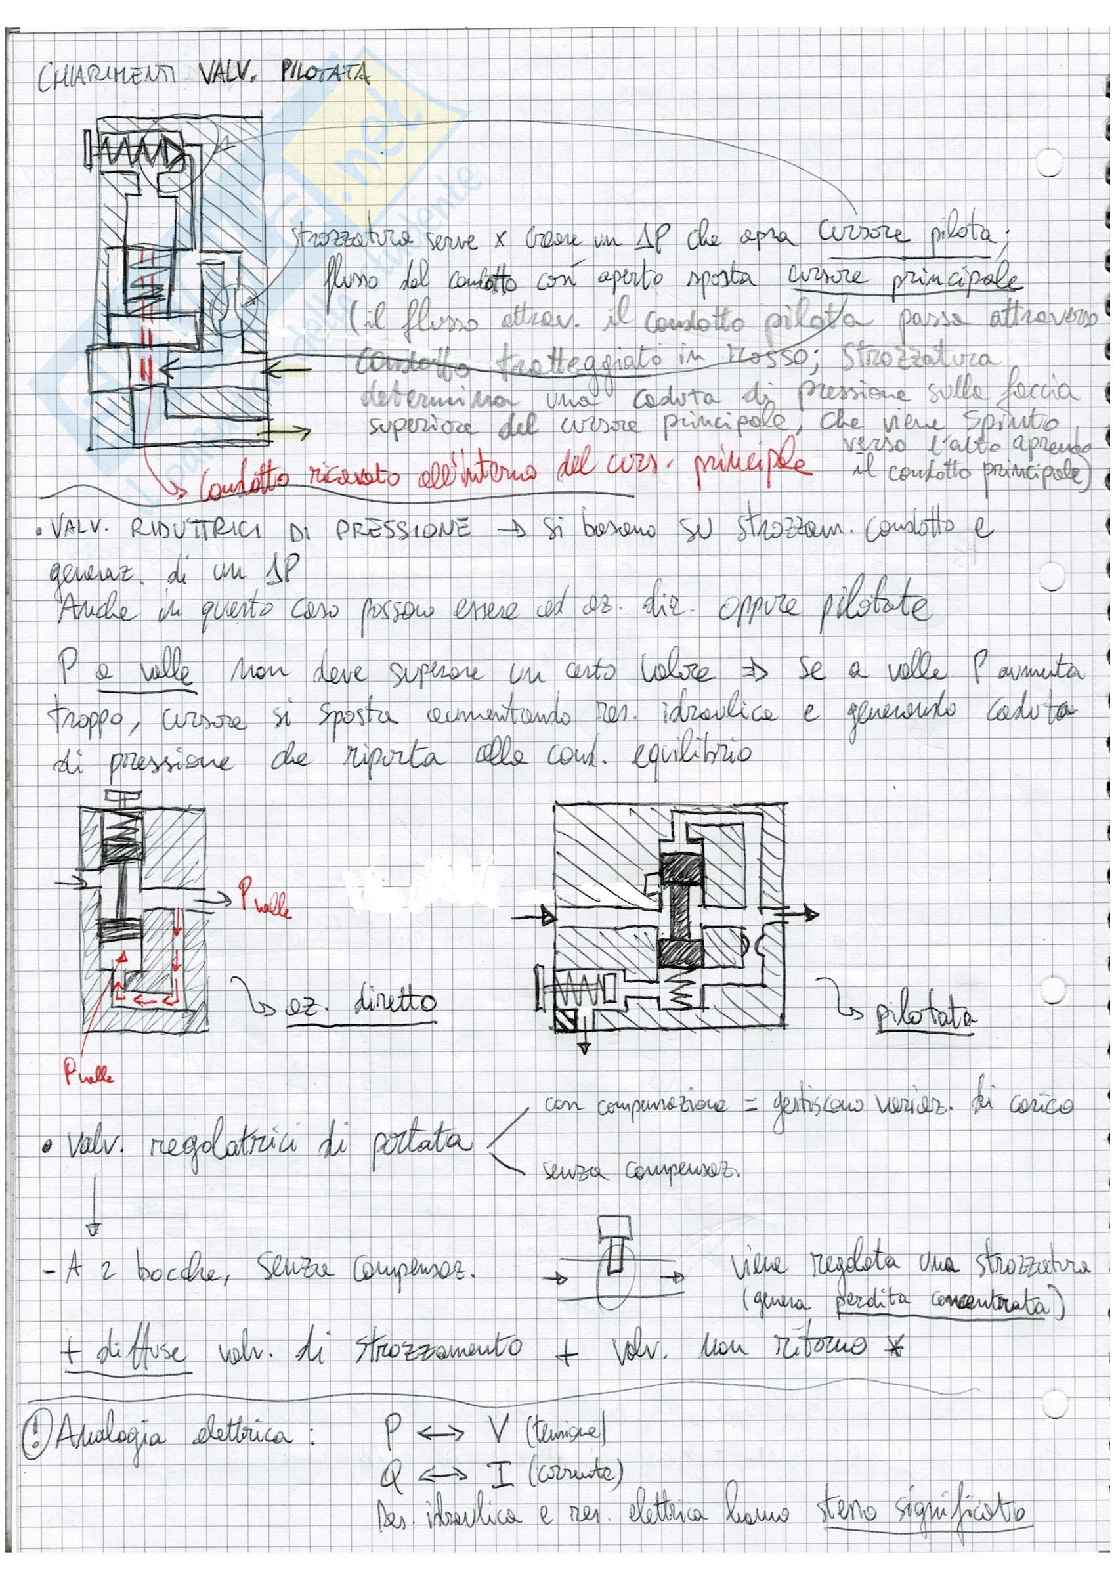 CHIARIMENTI VALV. PILOTATA
strozzatura serve x creare un ΔP che apra cursore pilota;
flusso del condotto così aperto sposta cursore principale
(il flusso attrav. il condotto pilota passa attraverso
condotto tratteggiato in rosso; strozzatura
determina una caduta di pressione sulla faccia
superiore del cursore principale, che viene spinto
verso l'alto aprendo
il condotto principale)
↳ Condotto ricavato all'interno del curs. principale
• VALV. RIDUTTRICI DI PRESSIONE → si basano su strozzam. condotto e
generaz. di un ΔP
Anche in questo caso possono essere ad az. dir. oppure pilotate
P a valle non deve superare un certo valore ⇒ se a valle P aumenta
troppo, cursore si sposta aumentando res. idraulica e generando caduta
di pressione che riporta alla cond. equilibrio
P valle
↳ az. diretto
↳ pilotata
P valle
con compensazione = gestiscono variaz. di carico
• Valv. regolatrici di portata
senza compensaz.
- A 2 bocche, senza compensaz.
viene regolata una strozzatura
(genera perdita concentrata)
+ diffuse valv. di strozzamento + valv. non ritorno *
! Analogia elettrica :
P ↔ V (tensione)
Q ↔ I (corrente)
Res. idraulica e res. elettrica hanno stesso significato